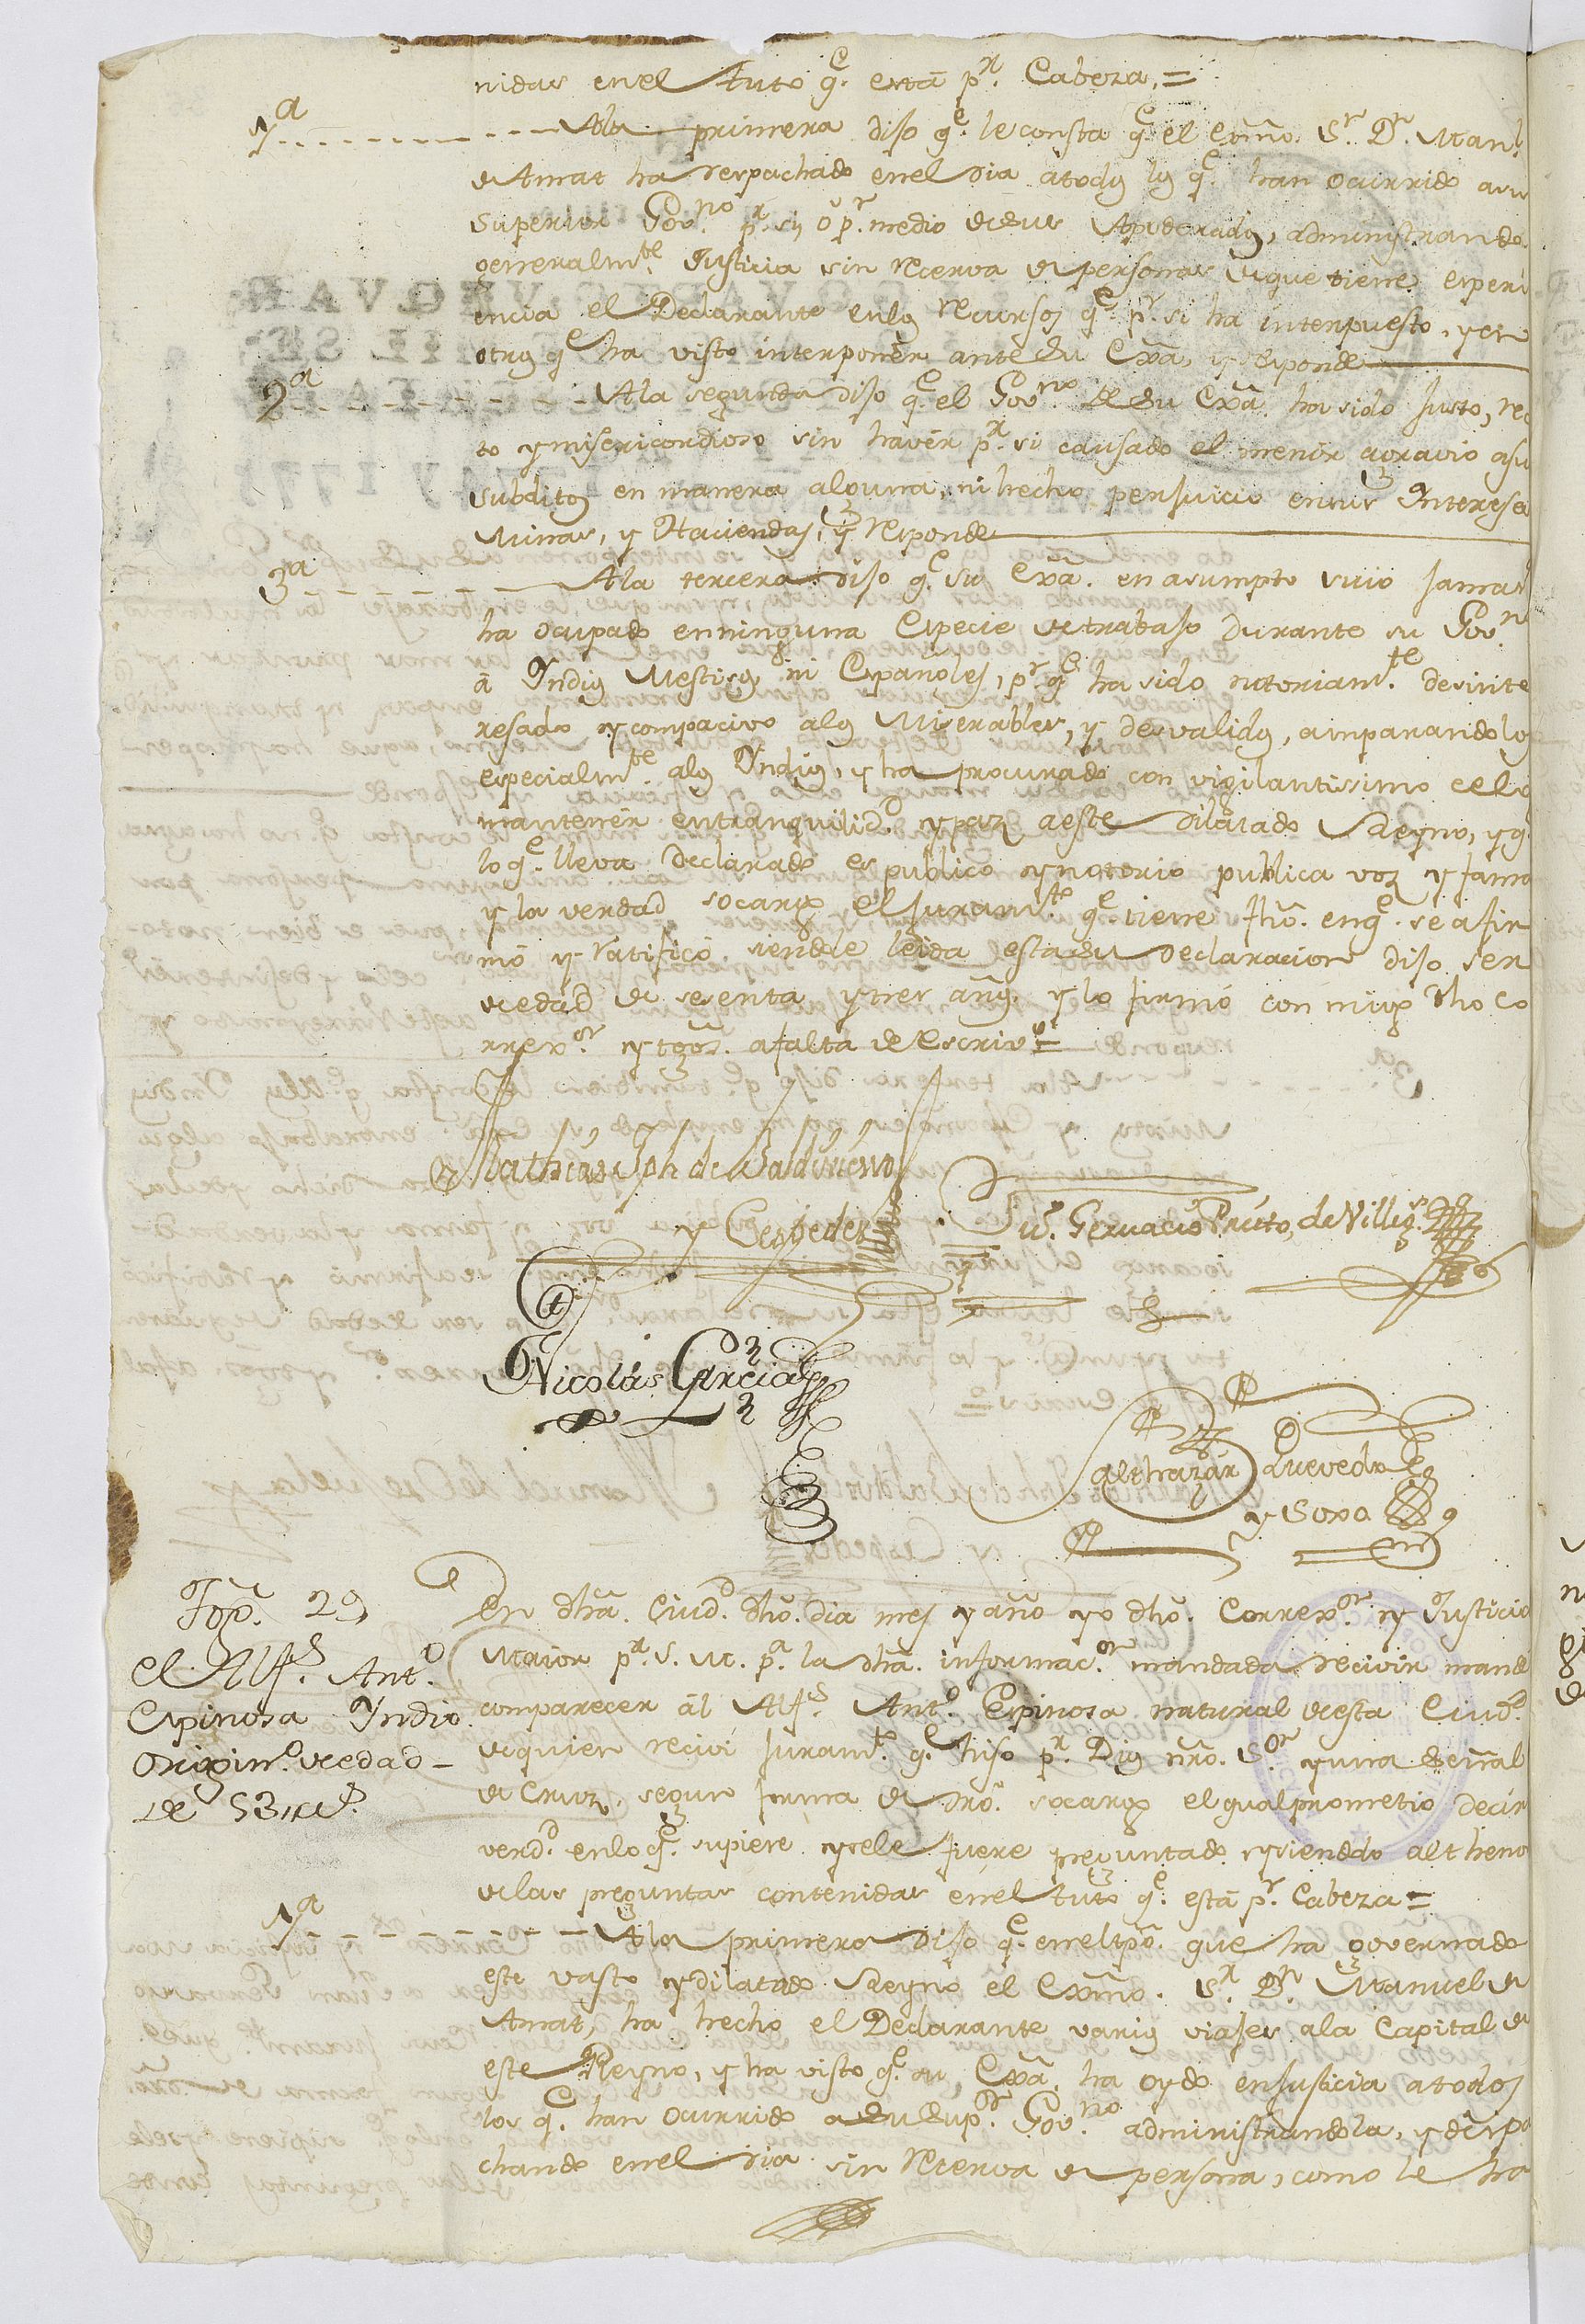 nidas en el Auto q.e está p.r Cabeza,=
1.a Ala primera dijo q.e le consta q.e el Exmo. S.r D.n Man.l
de Amat ha despachado en el dia atodos los q.e han ocurrido a su
superior Gov.no p.r si, ó p.r medio de sus Apoderados, administrando
generalm.te Justicia sin recerva de personas de que tiene esperi
encia el Declarante en los recursos q.e p.r si ha interpuesto, y en
otros q.e ha visto interponer ante Su Exa, y responde
2.a Ala segunda dijo q.e el Gov.no de Su Exa. ha sido Justo, rec
to y misericordioso sin havér p.r si causado el menór agravio asus
subditos en manera alguna, ni hecho perjuicio en sus Intereses
Minas, y Haciendas, y responde
3.a Ala tercera dijo q.e su Exa. en asumpto suio jamas
ha ocupado en ninguna Especie de trabajo durante su Gov.no
á Yndios Mestisos ni Españoles, p.r q.e ha sido notoriam.te desinte
resado y compacivo alos Miserables, y desvalidos, amparandolos
especialm.te alos Yndios, y ha procurado con vigilantissimo celo
mantenér en tranquilid.d y paz aeste dilatado Reyno, y q.e
lo q.e lleva Declarado es publico y notorio publica voz y fama
y la verdad socargo el Juram.to q.e tiene fho. en q.e se afir
mó y ratificó siendole leida esta su Declaracion dijo ser
de edad de sesenta y tres años, y lo firmó con migo dho Co
rrex.or y tgos. afalta de Escriv.o=
Mathias Jph de Baldivieso
y Cespedes
Ju.o Gervacio Prieto, de Villegs.
Nicolás Garcia
Balthazár Quevedo
y Soxo
Tgo. 29
El Alf.s Ant.o
Espinosa Yndio
Origin.o de edad
de 53 a.s
En dha. Ciud.d dho. dia mes y año yo dho. Correx.or y Justicia
Maior p.r S. M. p.a la dha. informac.on mandada recivir mandé
comparecer ál Alf.s Ant.o Espinosa natural de esta Ciud.d
de quien recivi Juram.to q.e hiso p.r Dios nro. S.or y una Señal
de Cruz, segun forma de dro. socargo el qual prometió decir
verd.d en lo q.e supiere y se le fuere preguntado, y siendolo al thenor
de las preguntas contenidas en el Auto q.e está p.r Cabeza=
1.a Ala primera dijo q.e en el tpo. que ha governado
este vasto y dilatado Reyno el Exmo. S.r D.n Manuel de
Amat, ha hecho el Declarante varios viajes ala Capital de
este Reyno, y ha visto q.e su Exa. ha oydo en Justicia a todos
los q.e han ocurrido a Su Sup.or Gov.no administrandola, y despa
chando en el dia sin recerva de persona, como le ha